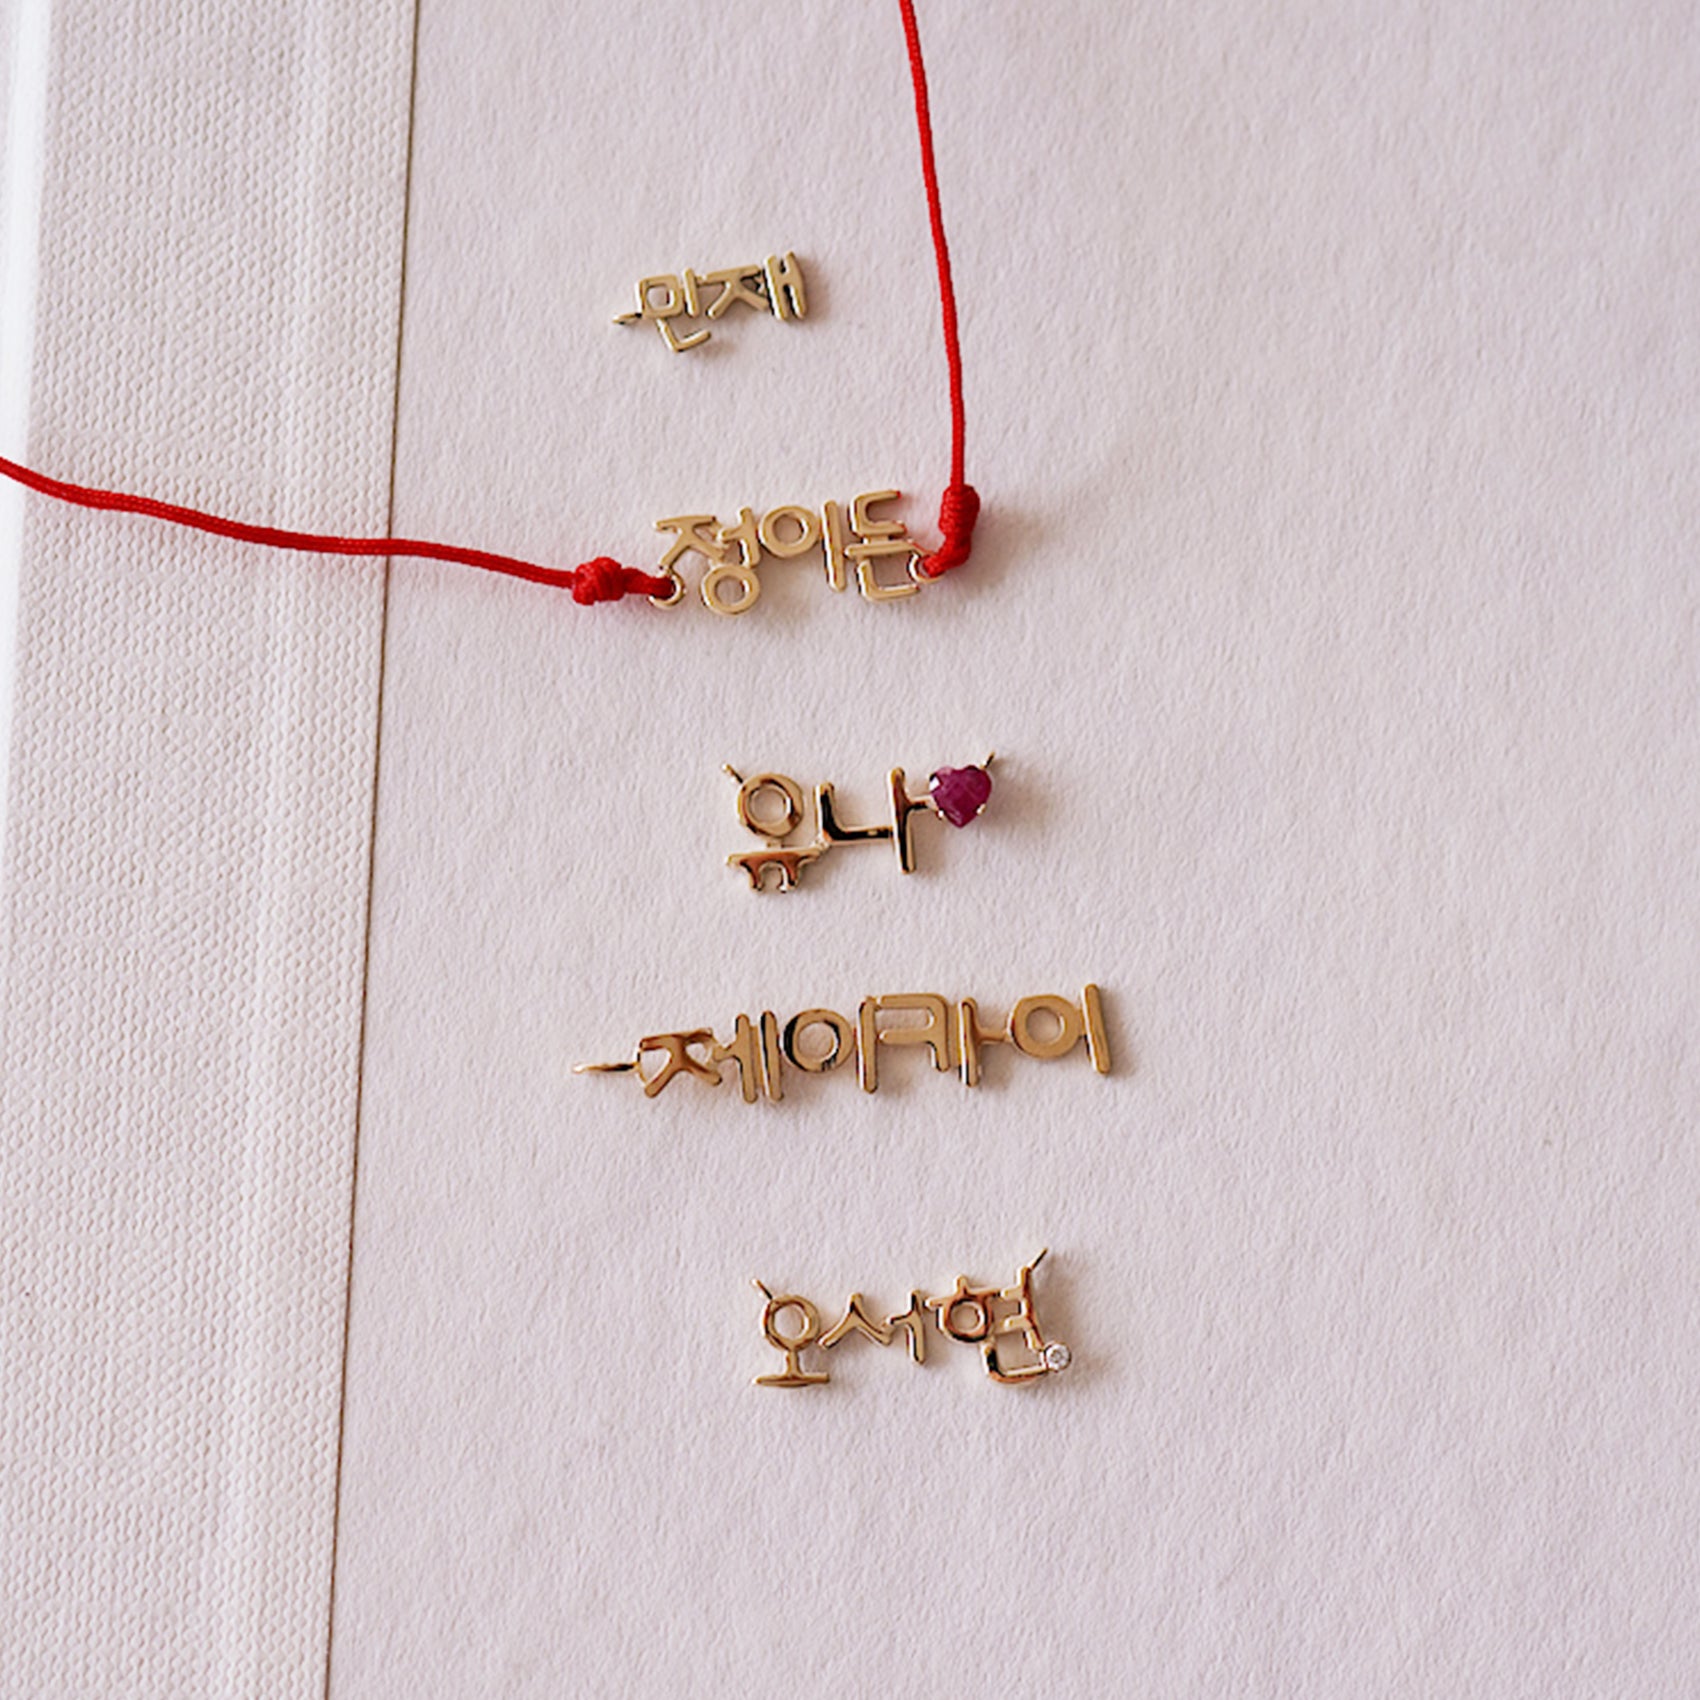 민재
정이든
유나
제이카이
오서현